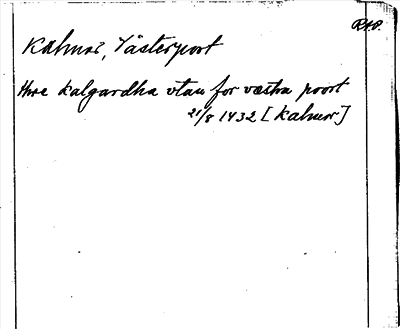 RAP.
Kalmar, Västerport
thre kalgardha vtan for væstra poort
21/8 1432 [Kalmar]